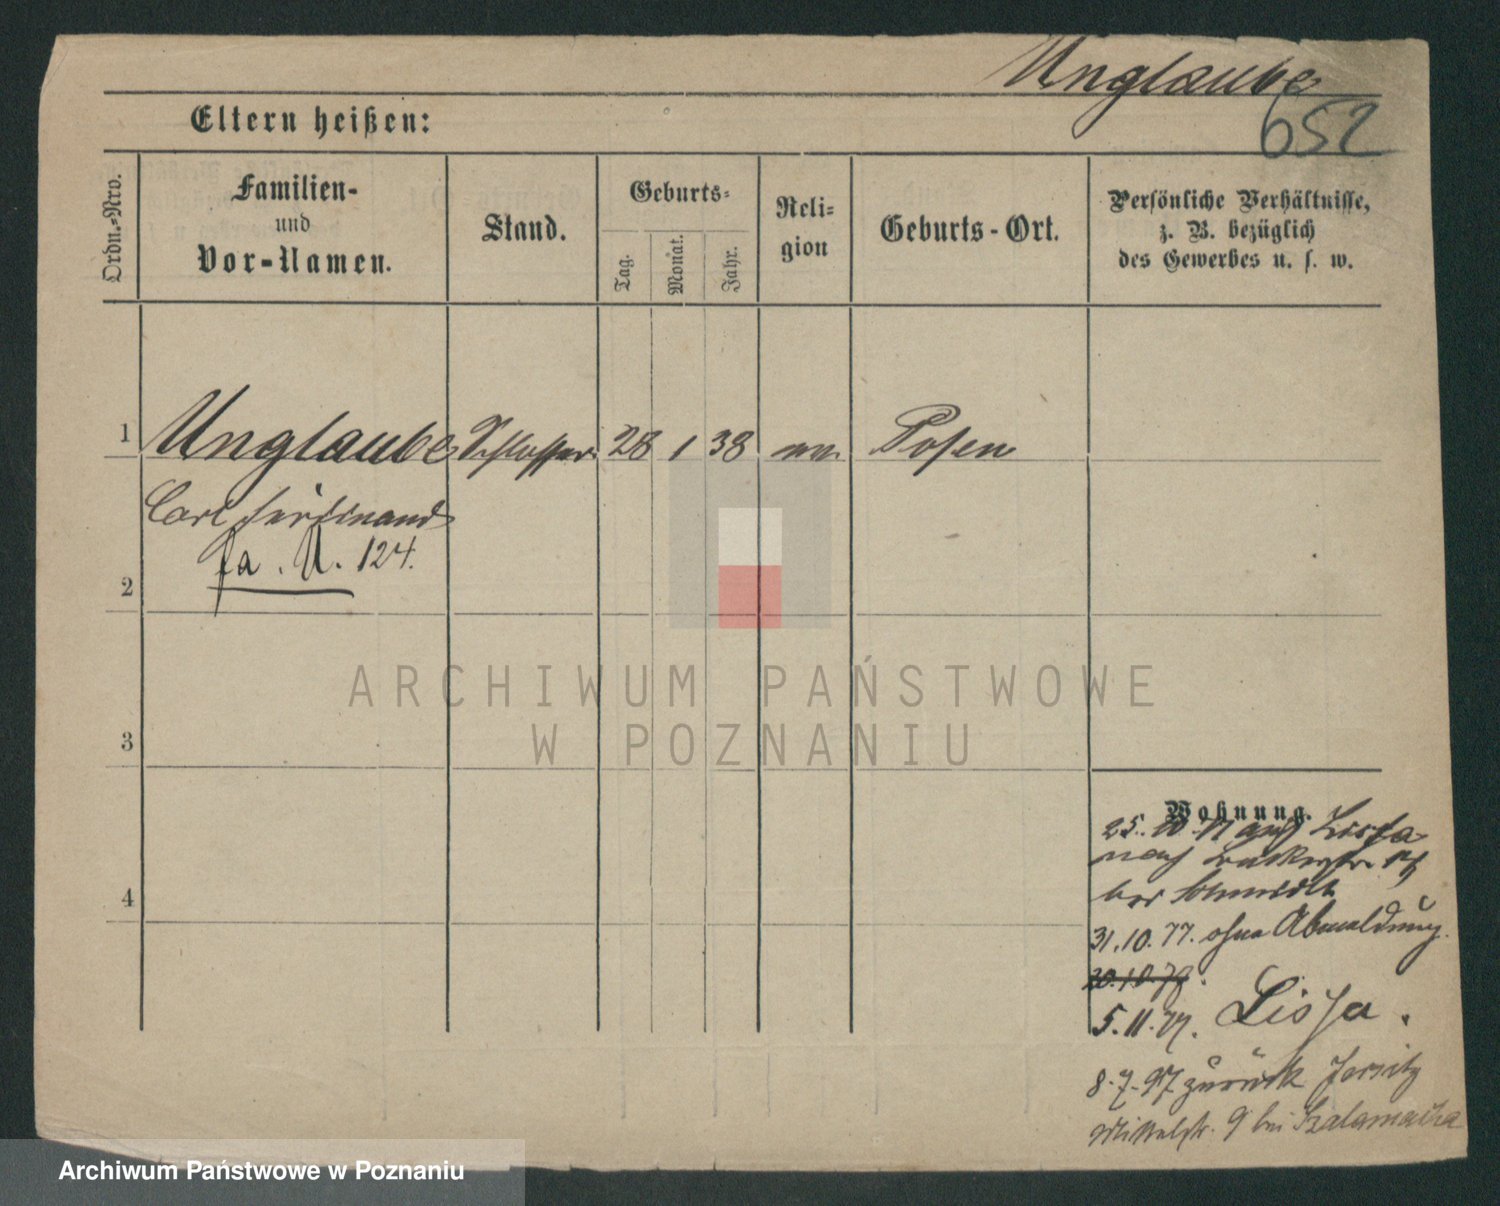 Unglaube
652
Eltern heißen:
Ordn.-Nro.
Familien-
und
Vor-Namen.
Stand.
Geburts-
Tag.
Monat.
Jahr.
Reli-
gion
Geburts-Ort.
Persönliche Verhältnisse,
z. B. bezüglich
des Gewerbes u. s. w.
1 Unglaube Schlosser 28 1 38 Posen
Carl Ferdinand
fa. U. 124.
2
3
4
ARCHIWUM PAŃSTWOWE
W POZNANIU
Wohnung.
25. 10. 77 aus Lissa
nach
bei Schmidt
31.10.77. ohne Abmeldung.
5.11.77. Lissa.
8.7.97 zurück Jersitz
9 bei
Archiwum Państwowe w Poznaniu